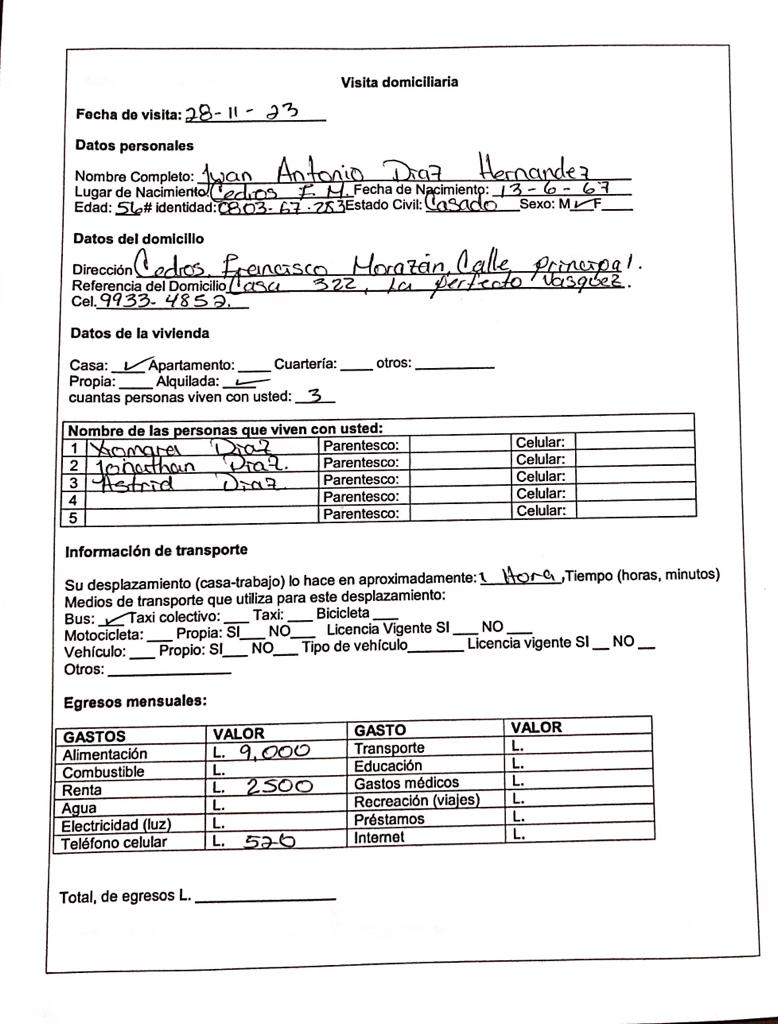 Visita domiciliaria
Fecha de visita: 28-11-23
Datos personales
Nombre Completo: Juan Antonio Diaz Hernandez
Lugar de Nacimiento: Cedros F. M. Fecha de Nacimiento: 13-6-67
Edad: 56 # identidad: 0803-67-283 Estado Civil: Casado Sexo: M ✓ F___
Datos del domicilio
Dirección Cedros, Francisco Morazán, Calle principal.
Referencia del Domicilio Casa 322, La perfecto Vasquez.
Cel. 9933-4852.
Datos de la vivienda
Casa: ✓ Apartamento: ____ Cuartería: ____ otros: __________
Propia: ____ Alquilada: ✓
cuantas personas viven con usted: 3
Nombre de las personas que viven con usted:
1 Xiomara Diaz Parentesco: Celular:
2 Jonathan Diaz. Parentesco: Celular:
3 Astrid Diaz Parentesco: Celular:
4 Parentesco: Celular:
5 Parentesco: Celular:
Información de transporte
Su desplazamiento (casa-trabajo) lo hace en aproximadamente: 1 Hora, Tiempo (horas, minutos)
Medios de transporte que utiliza para este desplazamiento:
Bus: ✓ Taxi colectivo: ___ Taxi: ___ Bicicleta ___
Motocicleta: ___ Propia: SI___ NO___ Licencia Vigente SI ___ NO ___
Vehículo: ___ Propio: SI___ NO___ Tipo de vehículo_______ Licencia vigente SI __ NO __
Otros: _______________
Egresos mensuales:
GASTOS VALOR GASTO VALOR
Alimentación L. 9,000 Transporte L.
Combustible L. Educación L.
Renta L. 2500 Gastos médicos L.
Agua L. Recreación (viajes) L.
Electricidad (luz) L. Préstamos L.
Teléfono celular L. 520 Internet L.
Total, de egresos L. _________________